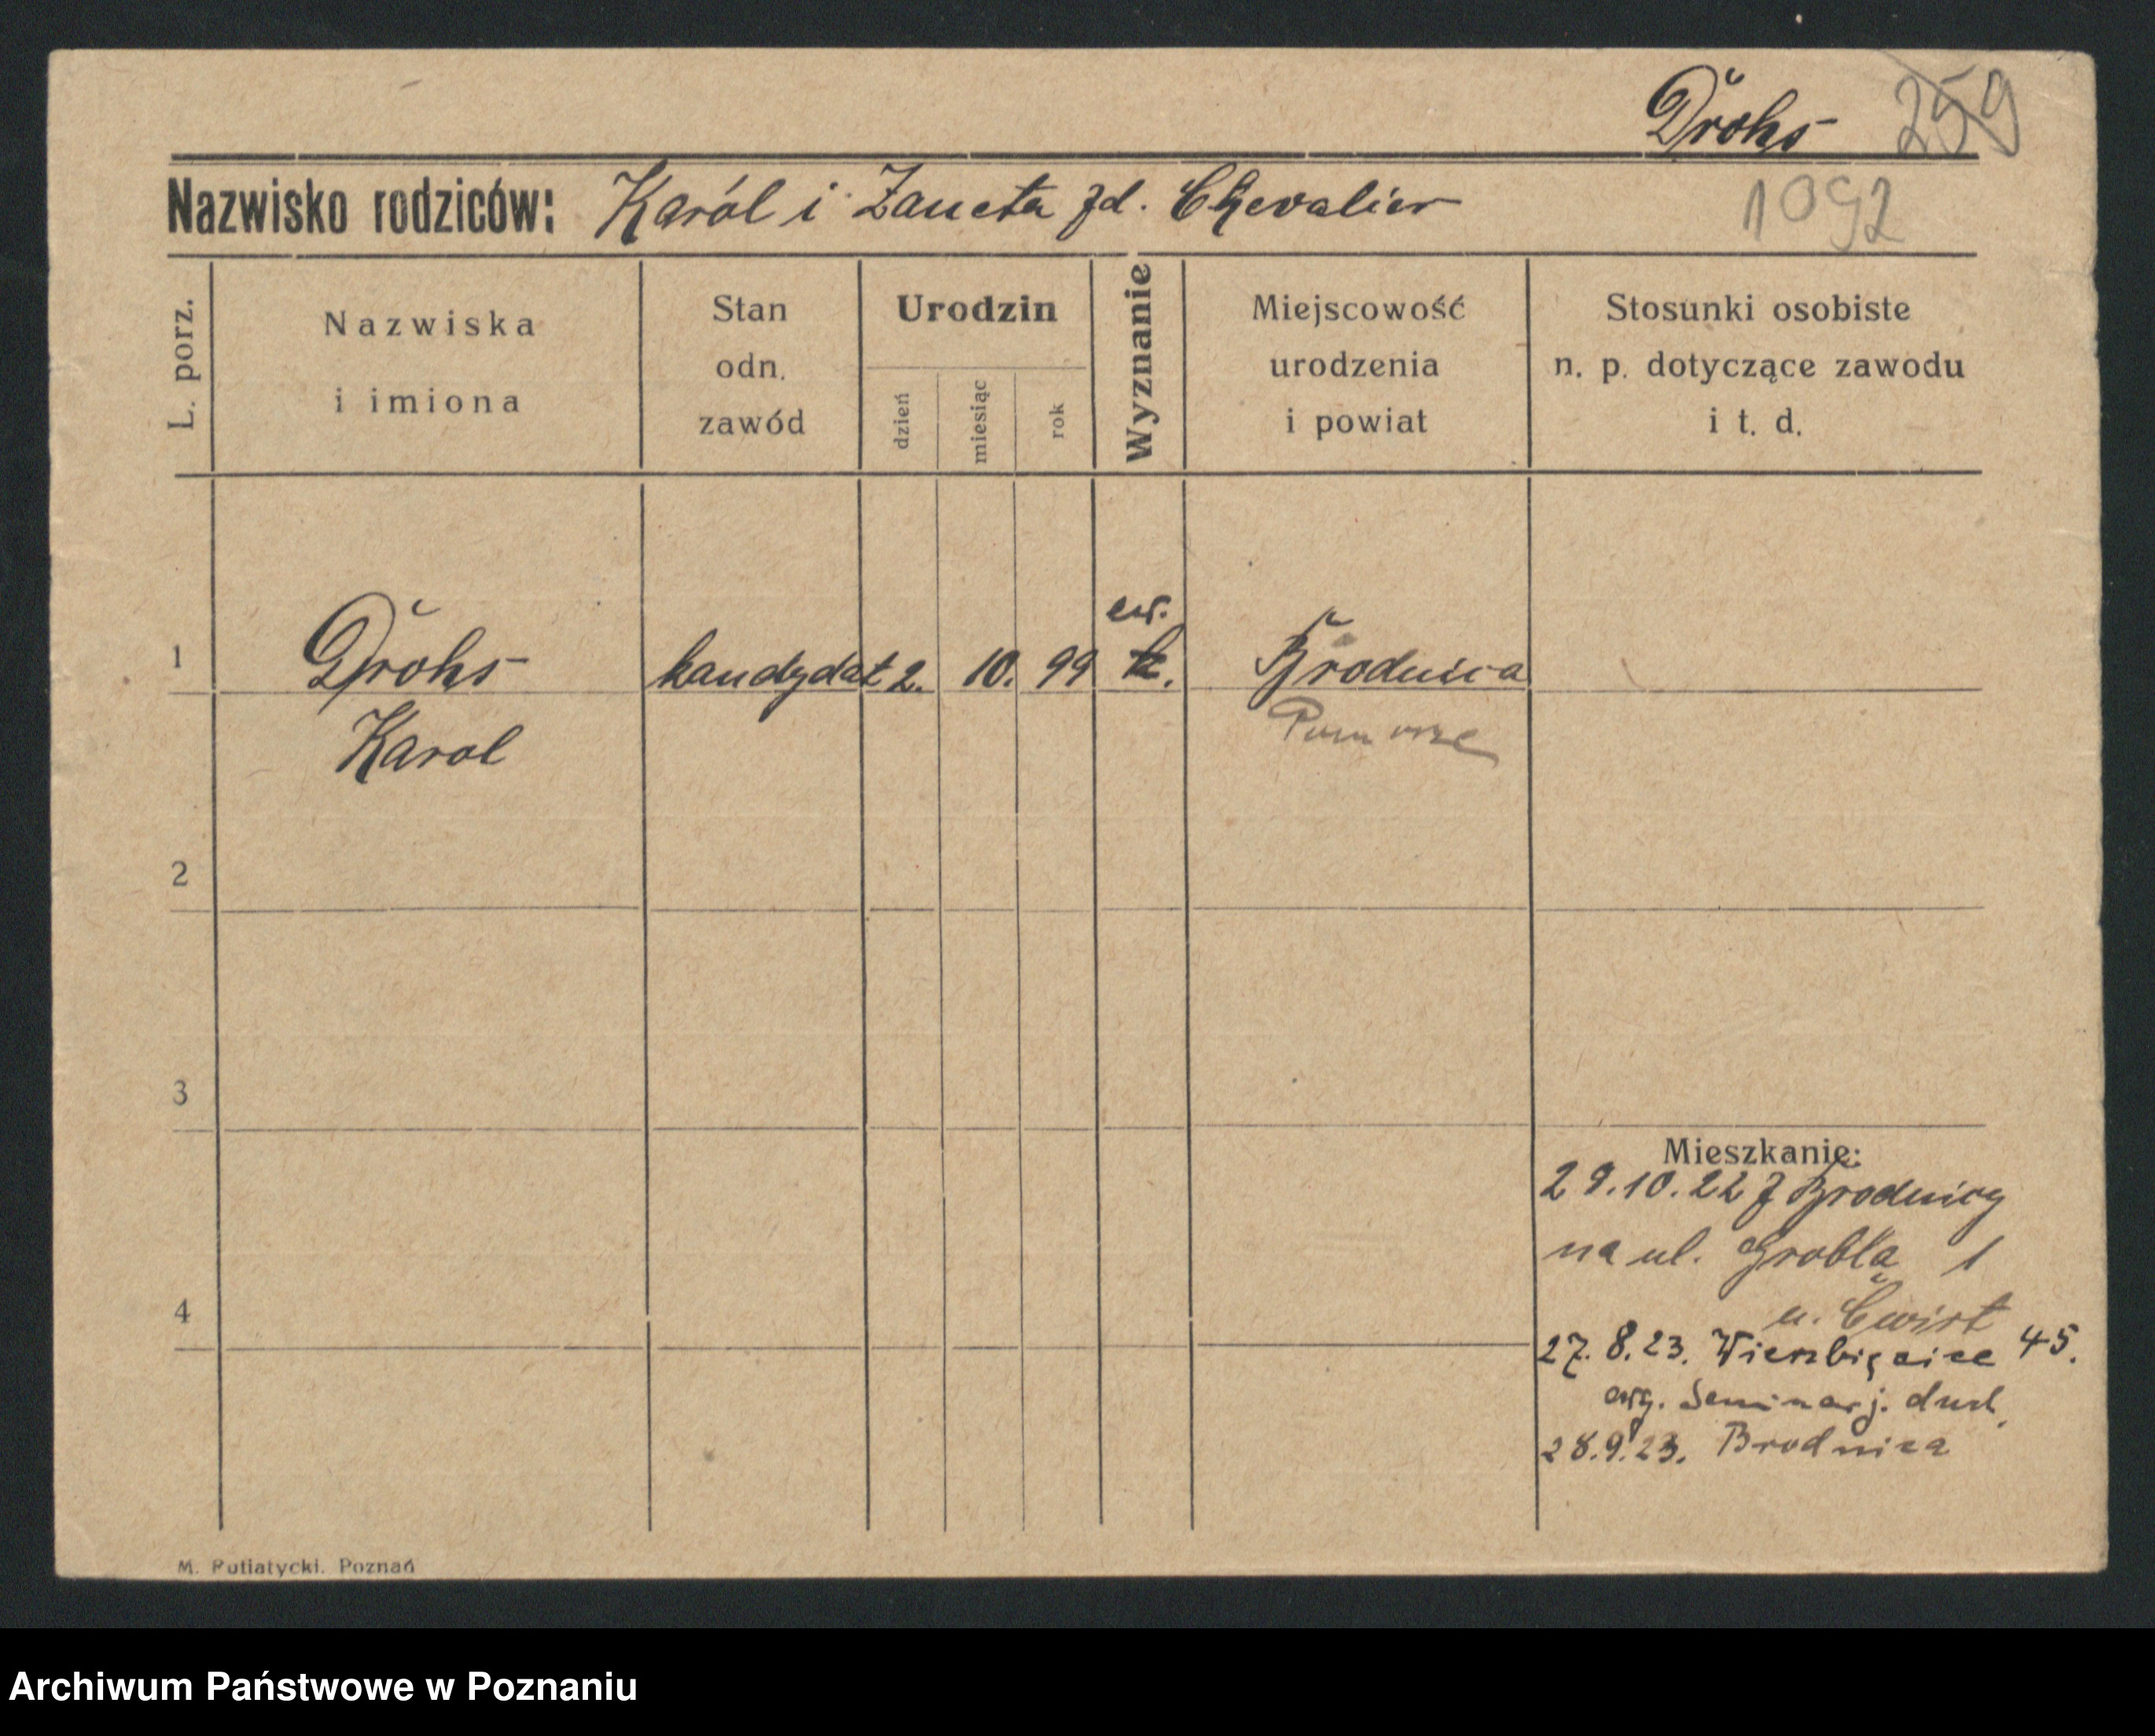 Drohs 259
Nazwisko rodziców: Karól i Zaneta zd. Chevalier 1092
L. porz.
Nazwiska
i imiona
Stan
odn.
zawód
Urodzin
dzień
miesiąc
rok
Wyznanie
Miejscowość
urodzenia
i powiat
Stosunki osobiste
n. p. dotyczące zawodu
i t. d.
ew.
1 Drohs kandydat 2. 10. 99 k. Brodnica
Karol Pomorze
2
3
Mieszkanie:
29.10.22 z Brodnicy
na ul. Grobla 1
4
u. Ewirt
27.8.23. Wierzbięcice 45.
ewg. Seminarj. duch.
28.9.23. Brodnica
M. Putiatycki. Poznań
Archiwum Państwowe w Poznaniu